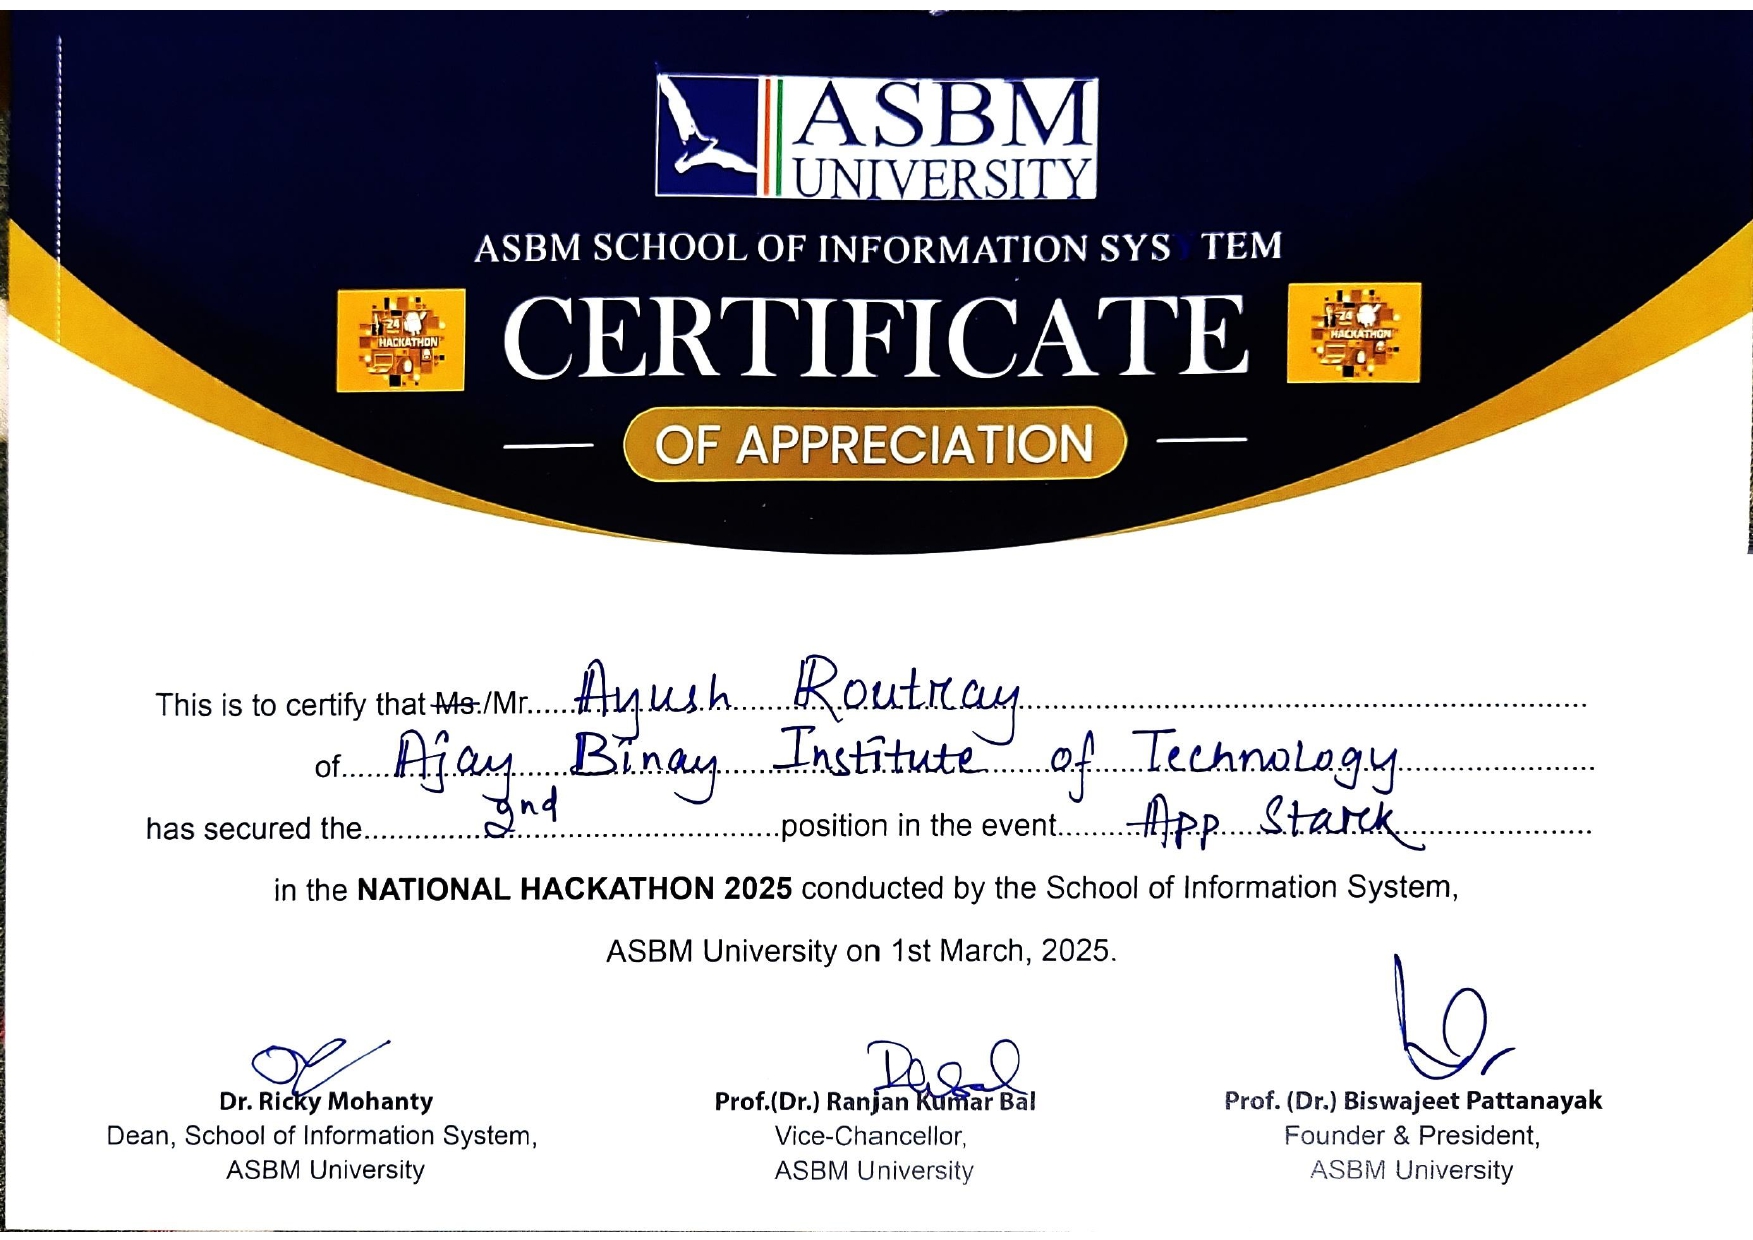 ASBM
UNIVERSITY
ASBM SCHOOL OF INFORMATION SYS TEM
24
HACKATHON
CERTIFICATE
24
HACKATHON
OF APPRECIATION
This is to certify that Ms./Mr. Ayush Routray
of Ajay Binay Institute of Technology
has secured the 2nd position in the event App Starck
in the NATIONAL HACKATHON 2025 conducted by the School of Information System,
ASBM University on 1st March, 2025.
Dr. Ricky Mohanty
Dean, School of Information System,
ASBM University
Prof.(Dr.) Ranjan Kumar Bal
Vice-Chancellor,
ASBM University
Prof. (Dr.) Biswajeet Pattanayak
Founder & President,
ASBM University